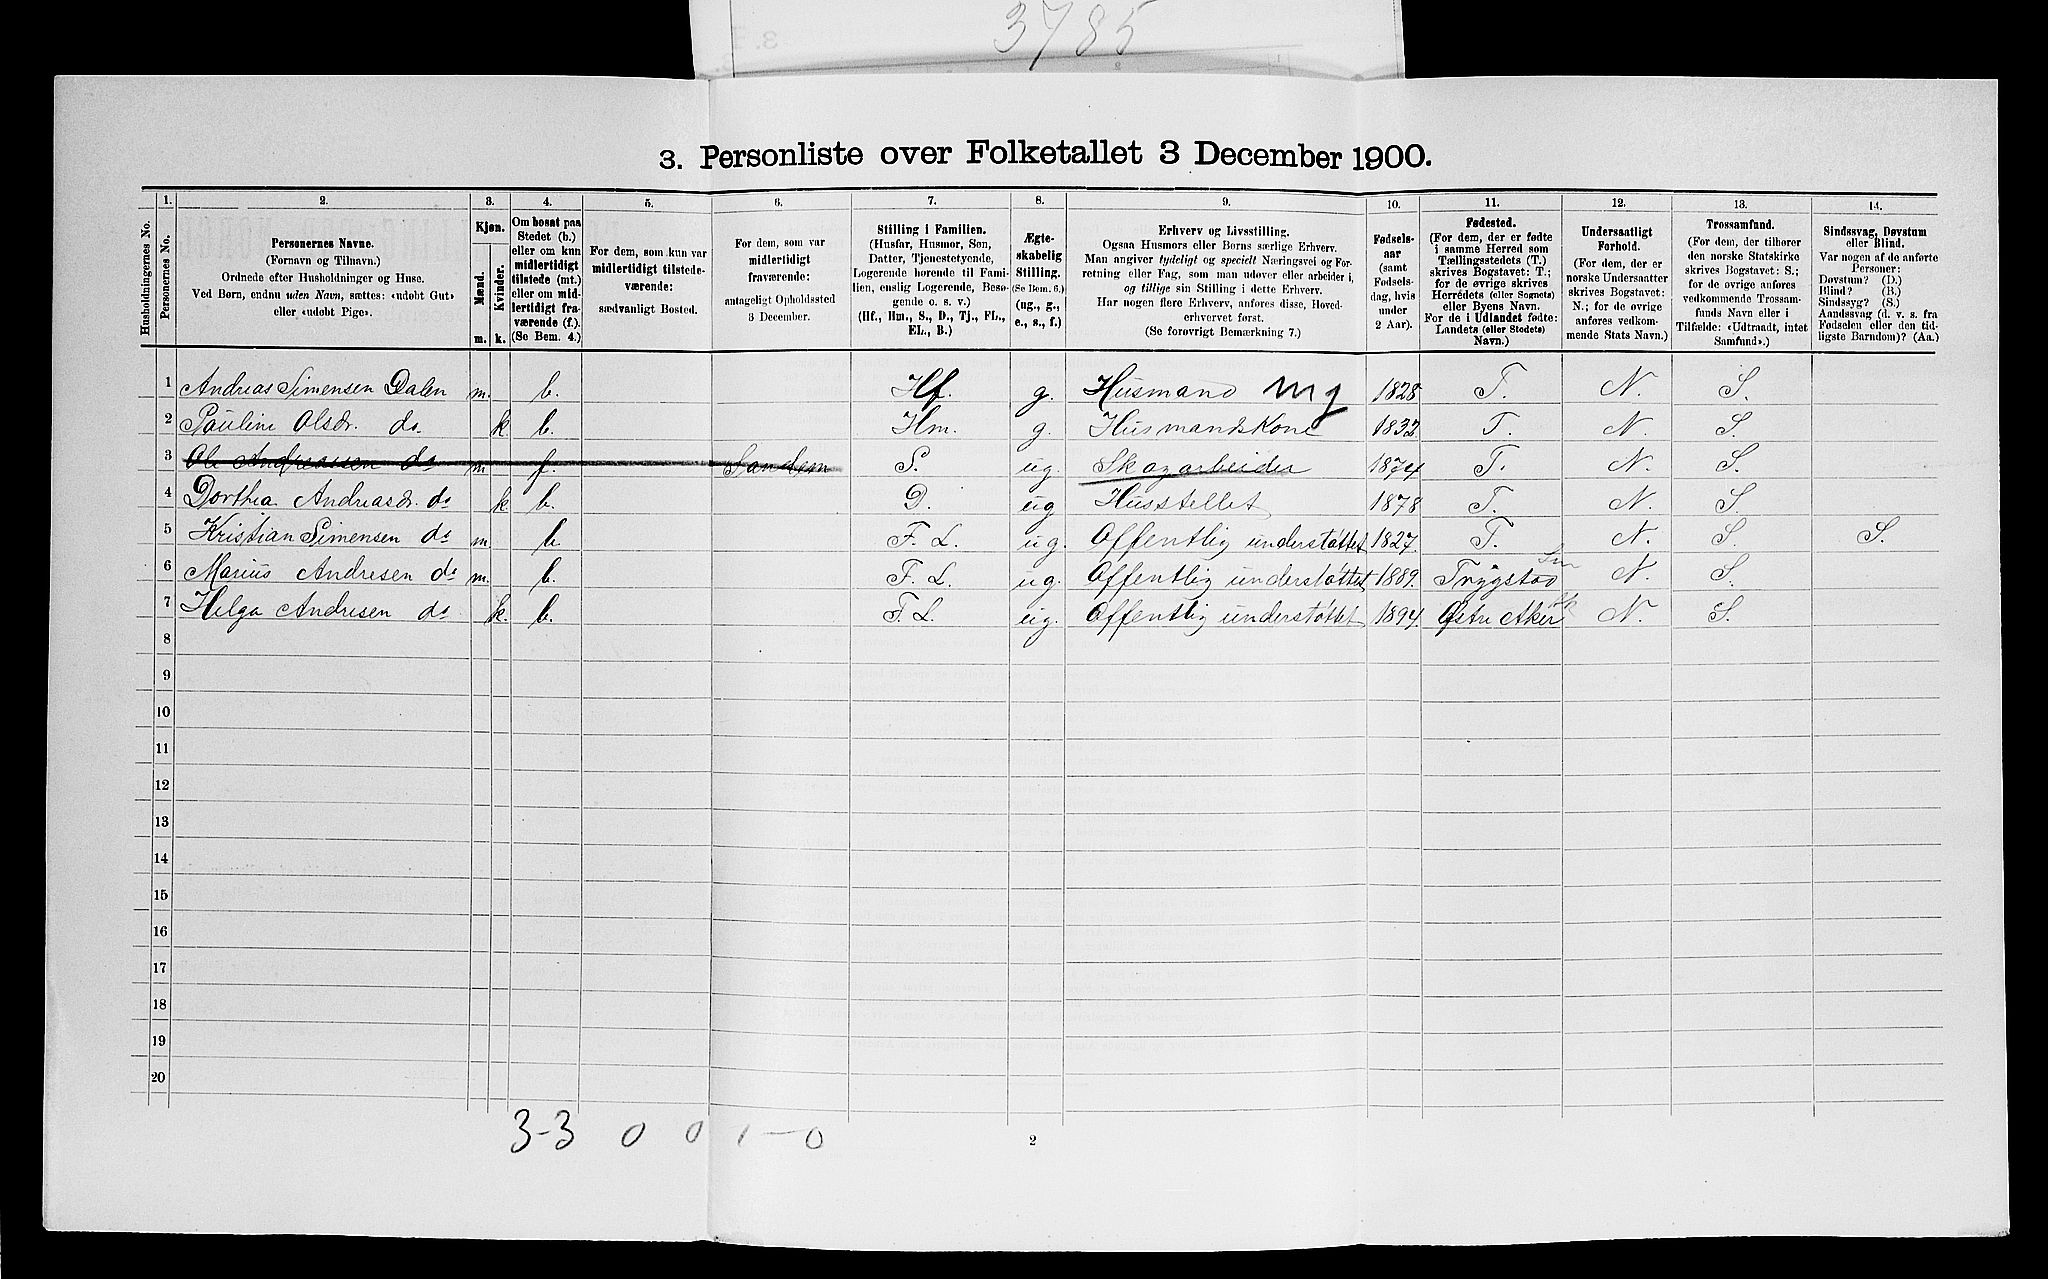 3785
3. Personliste over Folketallet 3 December 1900.
Husholdningernes No.
1.
Personernes No.
2.
Personernes Navne.
(Fornavn og Tilnavn.)
Ordnede efter Husholdninger og Huse.
Ved Børn, endnu uden Navn, sættes: «udøbt Gut»
eller «udøbt Pige».
3.
Kjøn.
Mænd.
Kvinder.
m. k.
4.
Om bosat paa
Stedet (b.)
eller om kun
midlertidigt
tilstede (mt.)
eller om mid-
lertidigt fra-
værende (f.).
(Se Bem. 4.)
5.
For dem, som kun var
midlertidigt tilstede-
værende:
sædvanligt Bosted.
6.
For dem, som var
midlertidigt
fraværende:
antageligt Opholdssted
3 December.
7.
Stilling i Familien.
(Husfar, Husmor, Søn,
Datter, Tjenestetyende,
Logerende hørende til Fami-
lien, enslig Logerende, Besø-
gende o. s. v.)
(Hf., Hm., S., D., Tj., FL.,
EL., B.)
8.
Ægte-
skabelig
Stilling.
(Se Bem. 6.)
(ug., g.,
e., s., f.)
9.
Erhverv og Livsstilling.
Ogsaa Husmors eller Børns særlige Erhverv.
Man angiver tydeligt og specielt Næringsvei og For-
retning eller Fag, som man udøver eller arbeider i,
og tillige sin Stilling i dette Erhverv.
Har nogen flere Erhverv, anføres disse, Hoved-
erhvervet først.
(Se forøvrigt Bemærkning 7.)
10.
Fødsels-
aar
(samt
Fødsels-
dag, hvis
under
2 Aar).
11.
Fødested.
(For dem, der er fødte
i samme Herred som
Tællingsstedets (T.)
skrives Bogstavet: T.;
for de øvrige skrives
Herredets (eller Sognets)
eller Byens Navn.
For de i Udlandet fødte:
Landets (eller Stedets)
Navn.)
12.
Undersaatligt
Forhold.
(For dem, der er
norske Undersaatter
skrives Bogstavet:
N.; for de øvrige
anføres vedkom-
mende Stats Navn.)
13.
Trossamfund.
(For dem, der tilhører
den norske Statskirke
skrives Bogstavet: S.;
for de øvrige anføres
vedkommende Trossam-
funds Navn eller i
Tilfælde: «Udtraadt, intet
Samfund».)
14.
Sindssvag, Døvstum
eller Blind.
Var nogen af de anførte
Personer:
Døvstum? (D.)
Blind? (B.)
Sindssyg? (S.)
Aandssvag (d. v. s. fra
Fødselen eller den tid-
ligste Barndom)? (Aa.)
1 Andreas Simensen Dalen m. b. Hf. g. Husmand 1828 T. N. S.
2 Pauline Olsdr. do. k. b. Hm. g. Husmandskone 1832. T. N. S.
3 Ole Andreassen do m. f. Sandem S. ug. Skogarbeider 1874 T. N. S.
4 Dorthea Andreasdr. do k. b. D. ug Husstellet 1878 T. N. S.
5 Kristian Simensen do m. b. F. L. ug. Offentlig understøttet 1827. T. N. S. S.
6 Marius Andresen do m. b. F. L. ug. Offentlig understøttet 1889. Trygstad N. S.
7 Helga Andresen do. k. b. F. L. ug. Offentlig understøttet 1894. Østre Aker N. S.
8
9
10
11
12
13
14
15
16
17
18
19
20
3-3 0 0 1-0
2